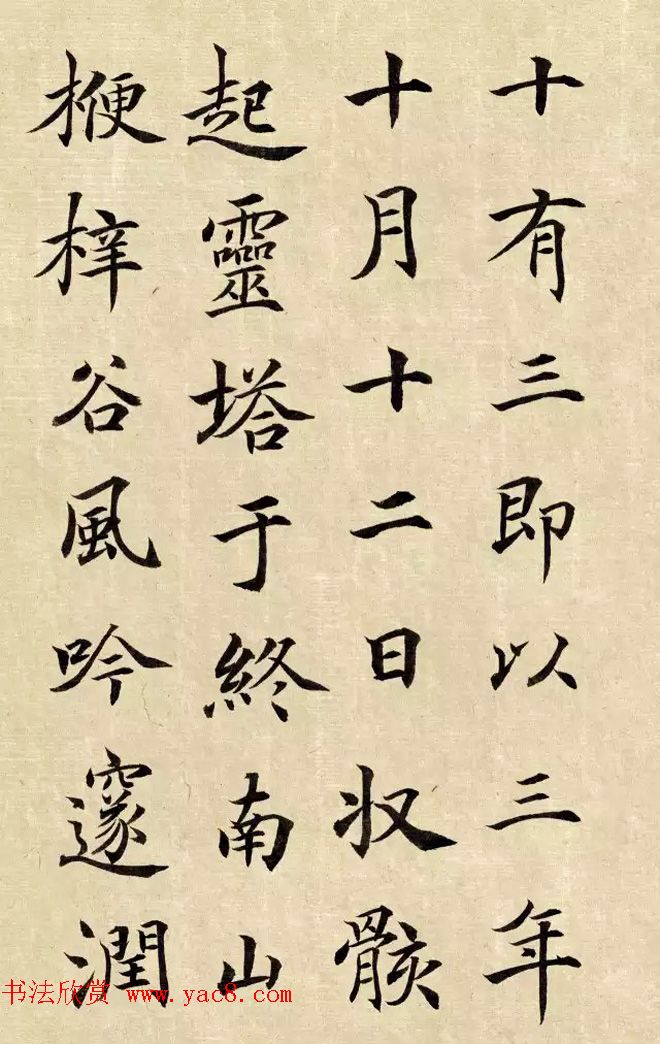 十有三即以三年
十月十二日収骸
起靈塔于終南山
楩梓谷風吟邃潤
书法欣赏 www.yac8.com